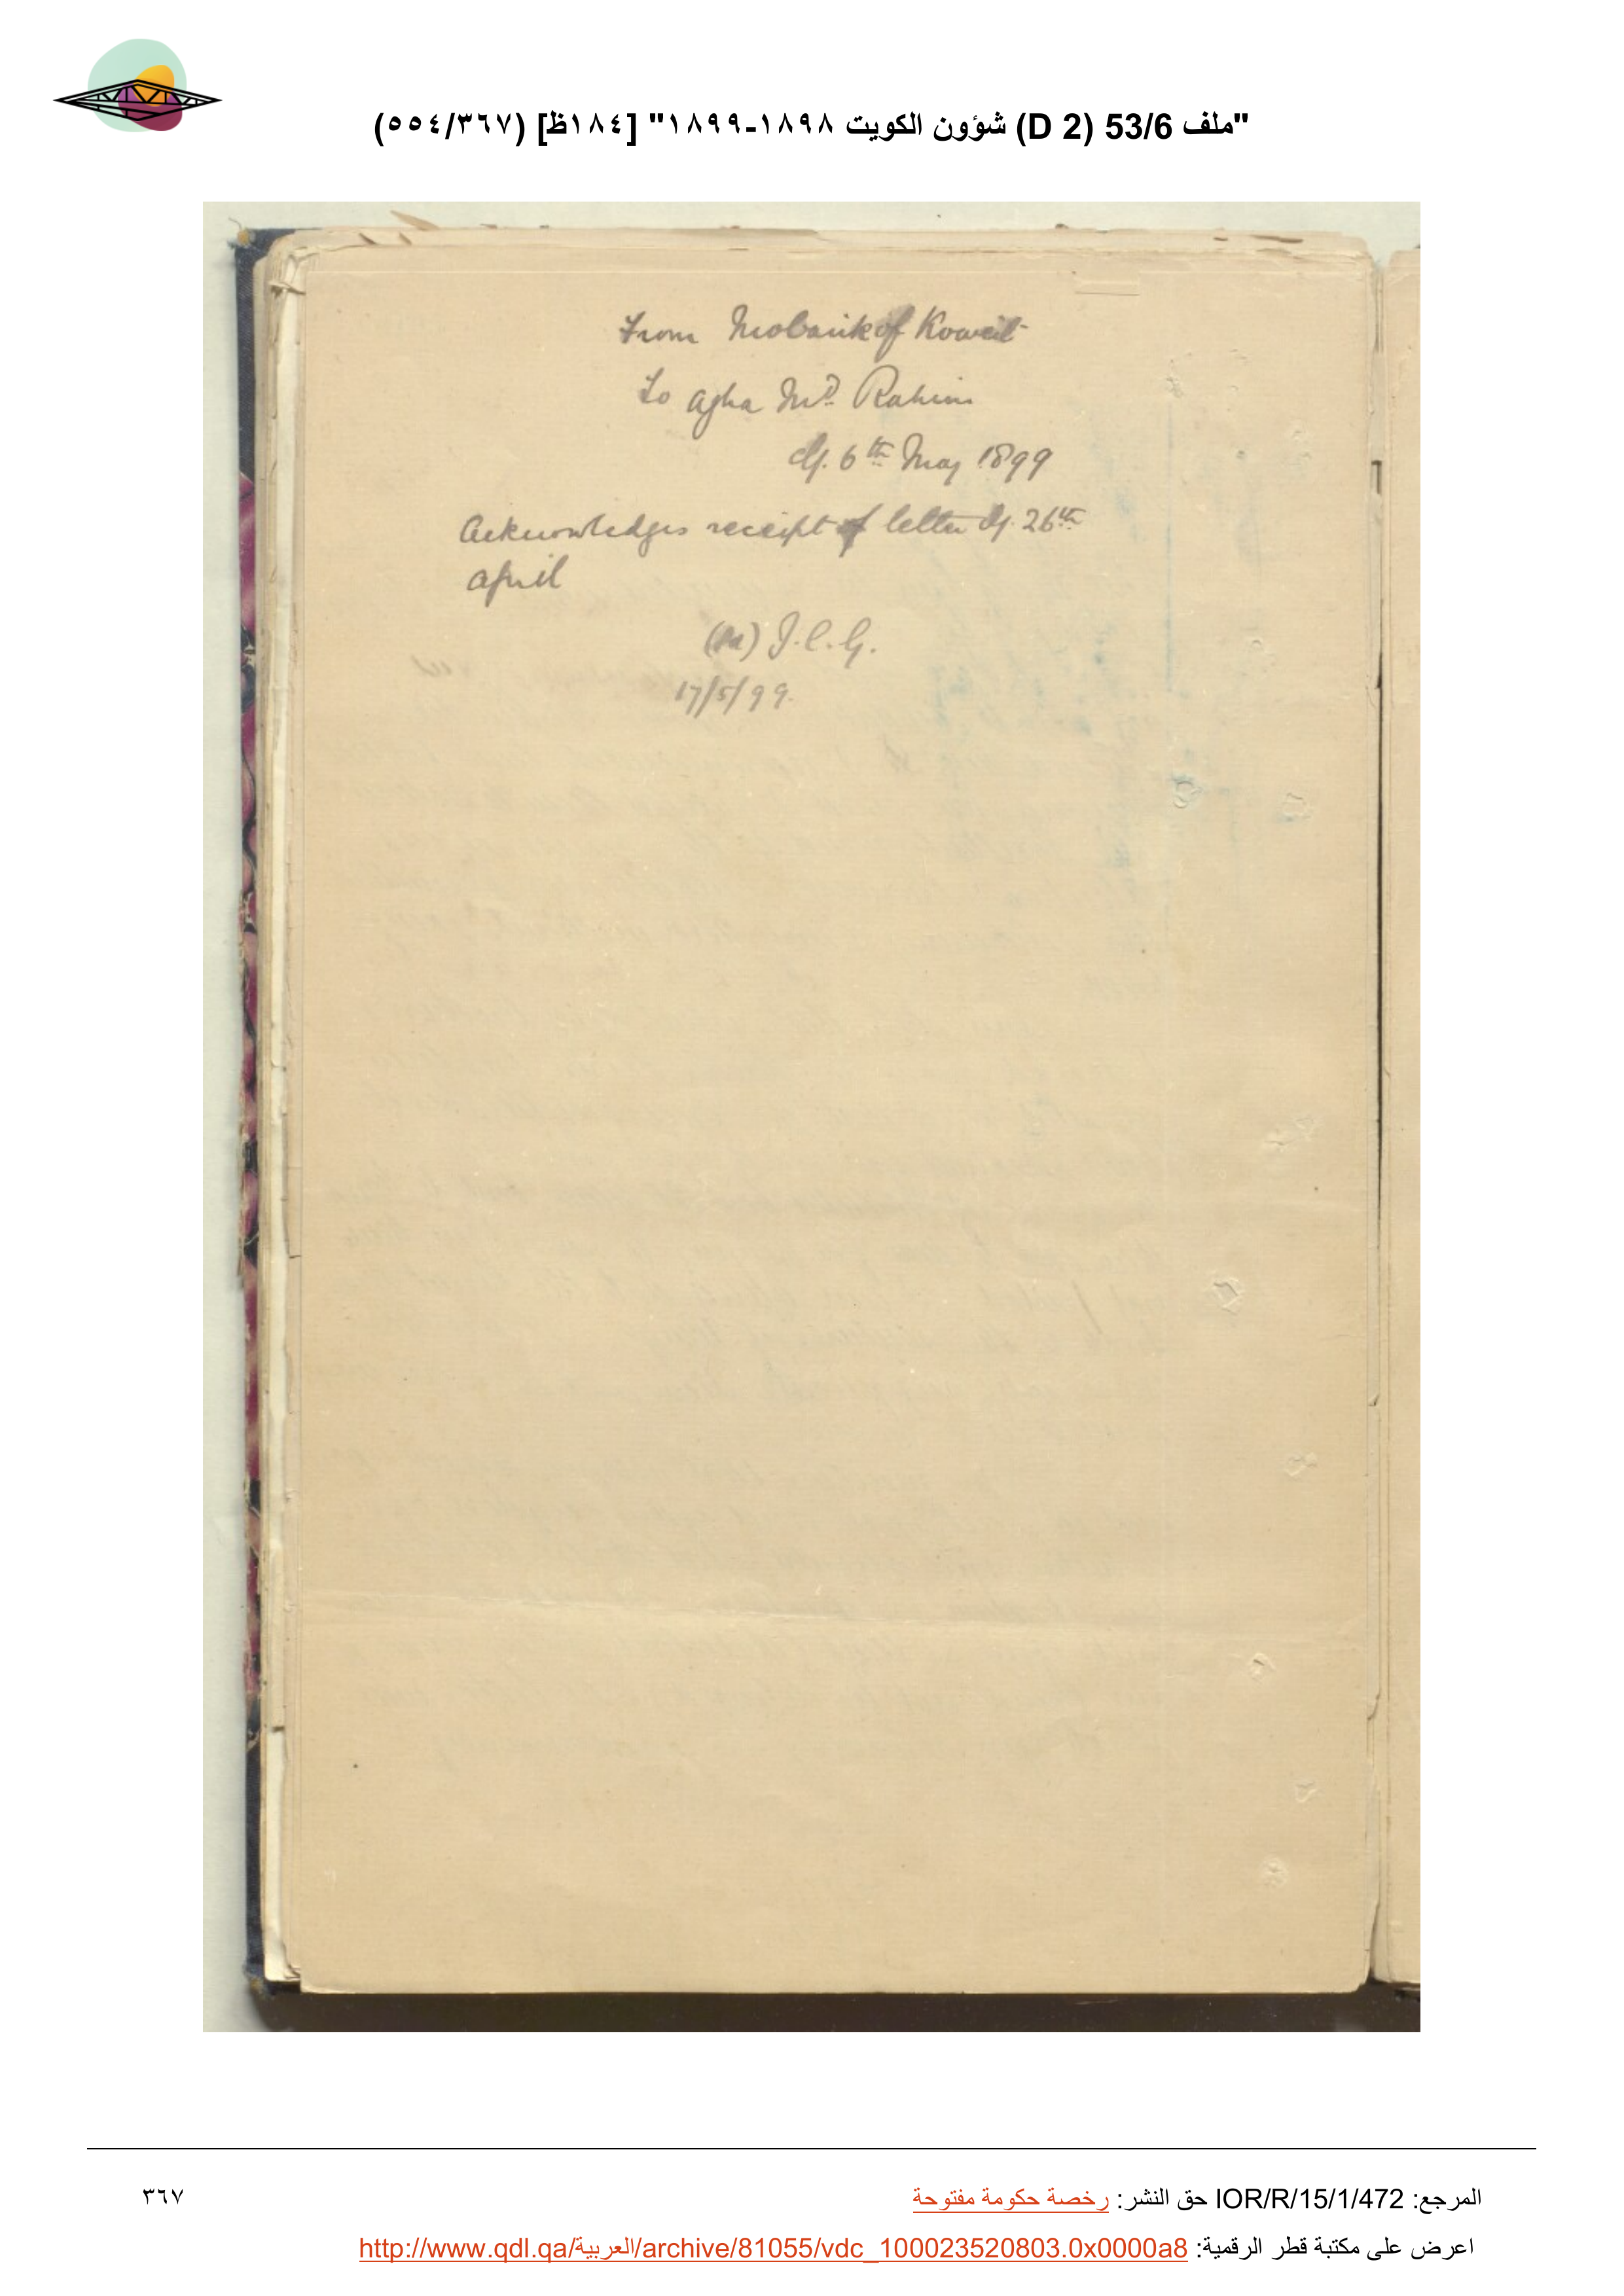 "ملف 53/6 (D 2) شؤون الكويت ١٨٩٨-١٨٩٩" [١٨٤ظ] (٥٥٤/٣٦٧)
From Mobarik of Koweit
To Agha Md. Rahim
d/. 6th May 1899
Acknowledges receipt of letter d/. 26th
April
J.C.G.
17/5/99.
المرجع: IOR/R/15/1/472 حق النشر: رخصة حكومة مفتوحة
٣٦٧
اعرض على مكتبة قطر الرقمية: http://www.qdl.qa/العربية/archive/81055/vdc_100023520803.0x0000a8